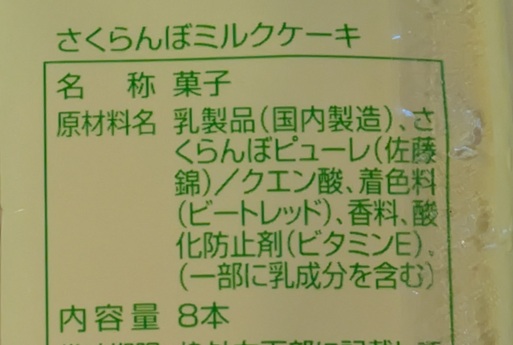 さくらんぼミルクケーキ
名 称 菓子
原材料名 乳製品(国内製造)、さ
くらんぼピューレ(佐藤
錦)／クエン酸、着色料
(ビートレッド)、香料、酸
化防止剤(ビタミンE)、
(一部に乳成分を含む)
内容量 8本